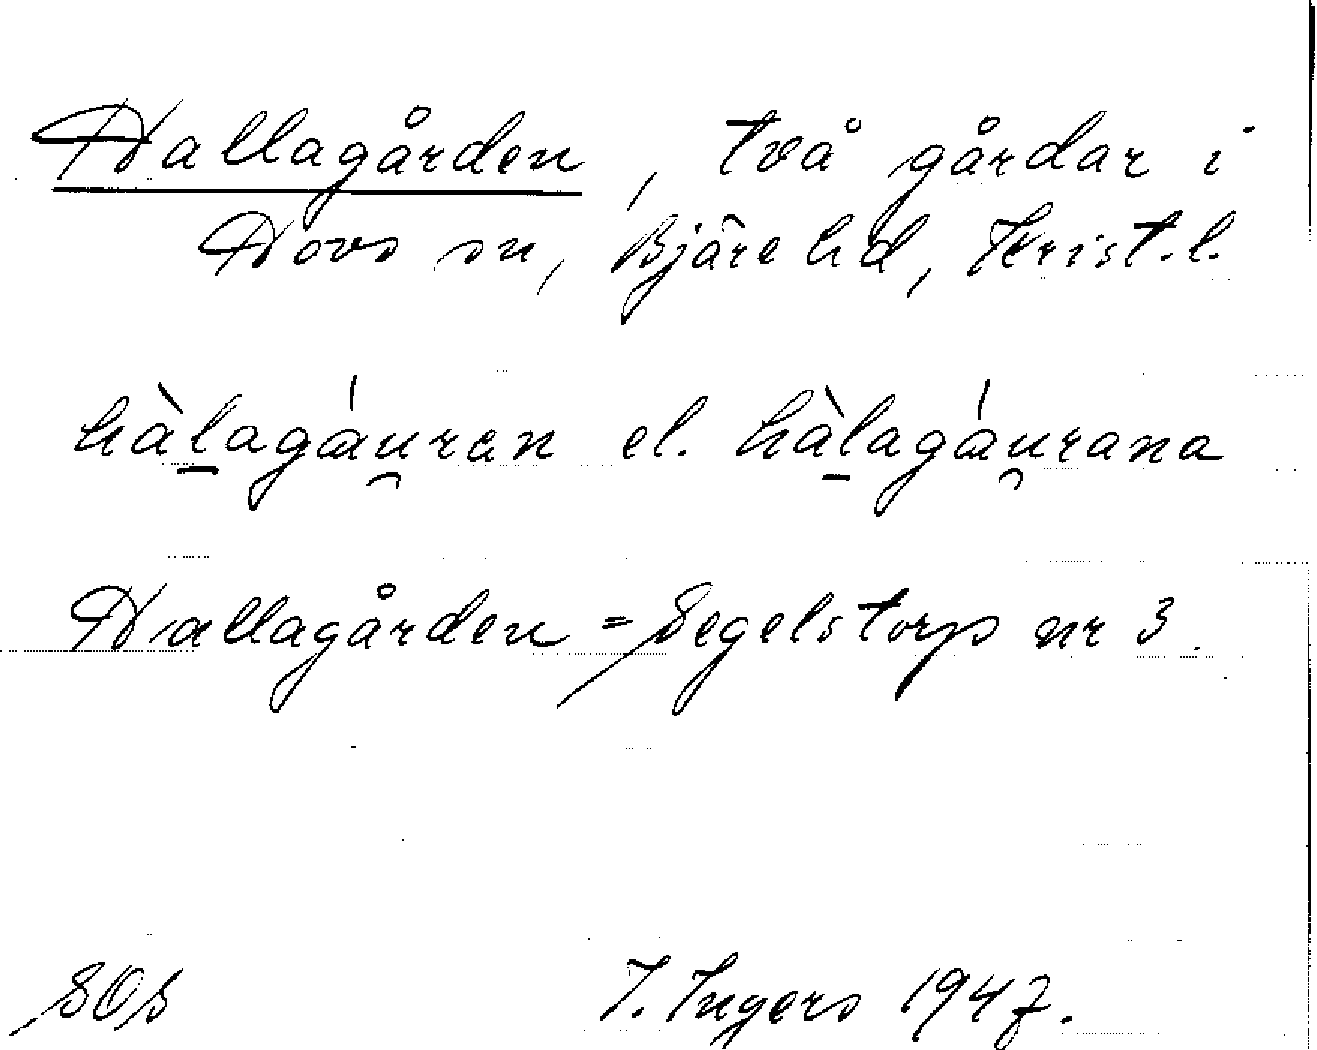 Hallagården, två gårdar i
Hovs sn, Bjäre hd, Krist. l.
hàl̠agáu̯ran el. hàl̠agáu̯rana
Hallagården = Segelstorp nr 3.
SOS I. Ingers 1947.